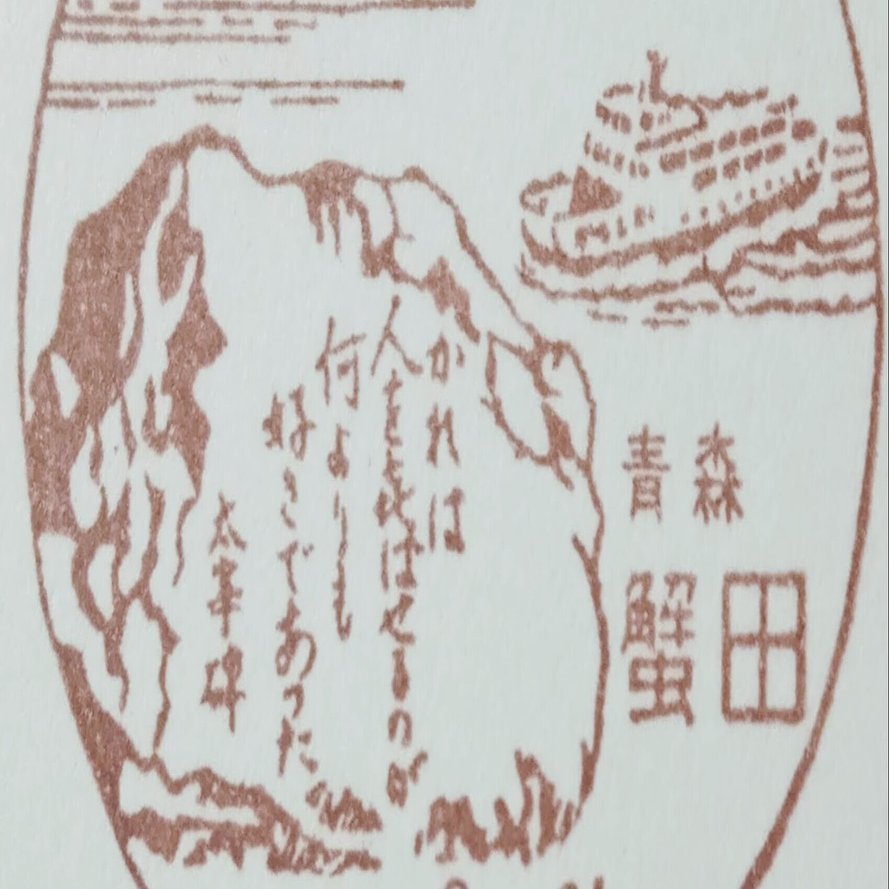 かれは
人を喜ばせるのが
何よりも
好きであった
太宰碑
青森
蟹田